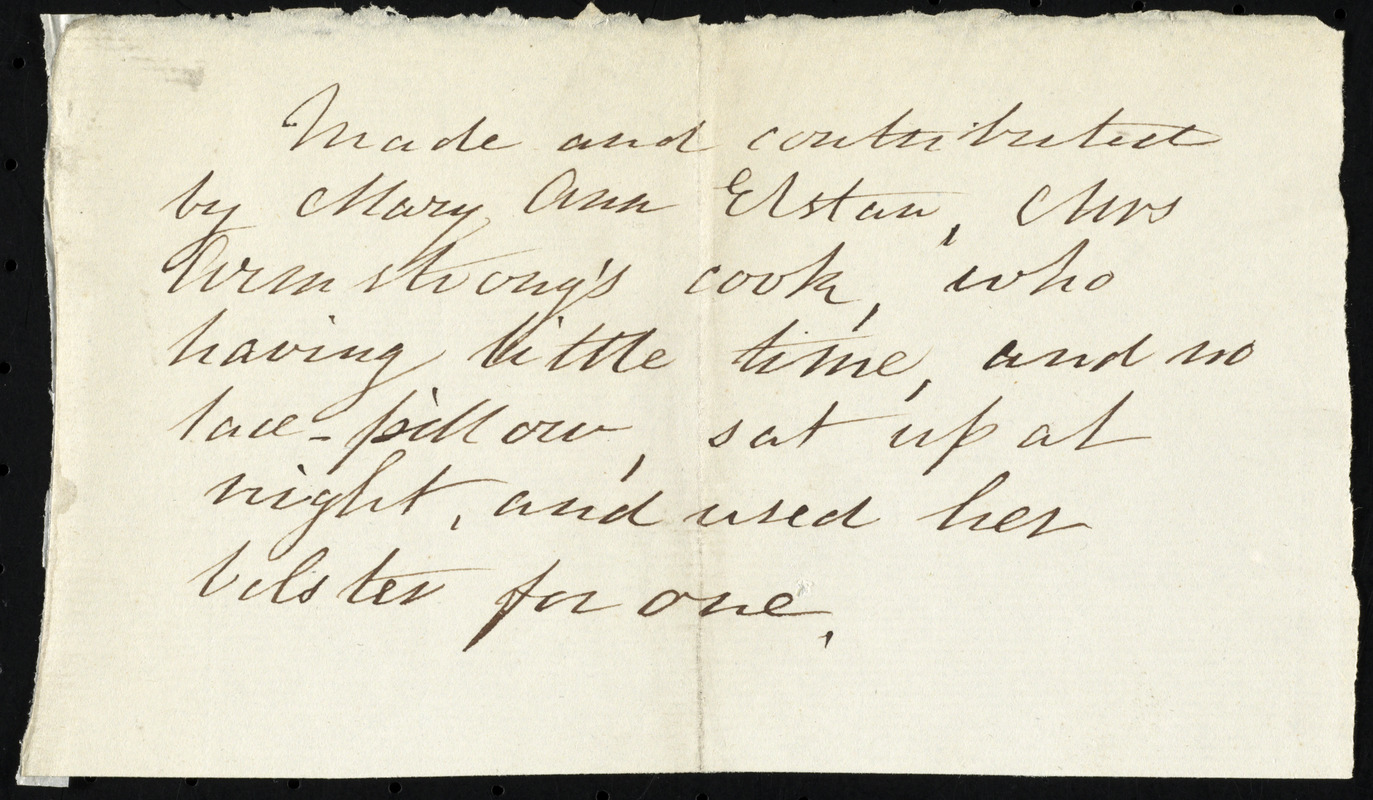 Made and contributed
by Mary Ann Elstan, Mrs
Armstrong's cook, who
having little time, and no
lace-pillow, sat up at
night, and used her
bolster for one,